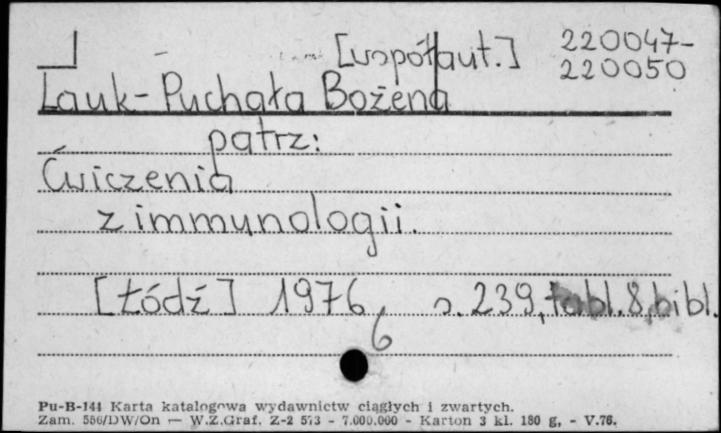 [współaut.] 220047-
220050
Lauk-Puchała Bożena
patrz:
Ćwiczenia
z immunologii.
[Łódź] 1976, s. 239, tabl. 8, bibl.
6
Pu-B-144 Karta katalogowa wydawnictw ciągłych i zwartych.
Zam. 556/DW/On — W.Z.Graf. Z-2 573 - 7.000.000 - Karton 3 kl. 180 g, - V.76.